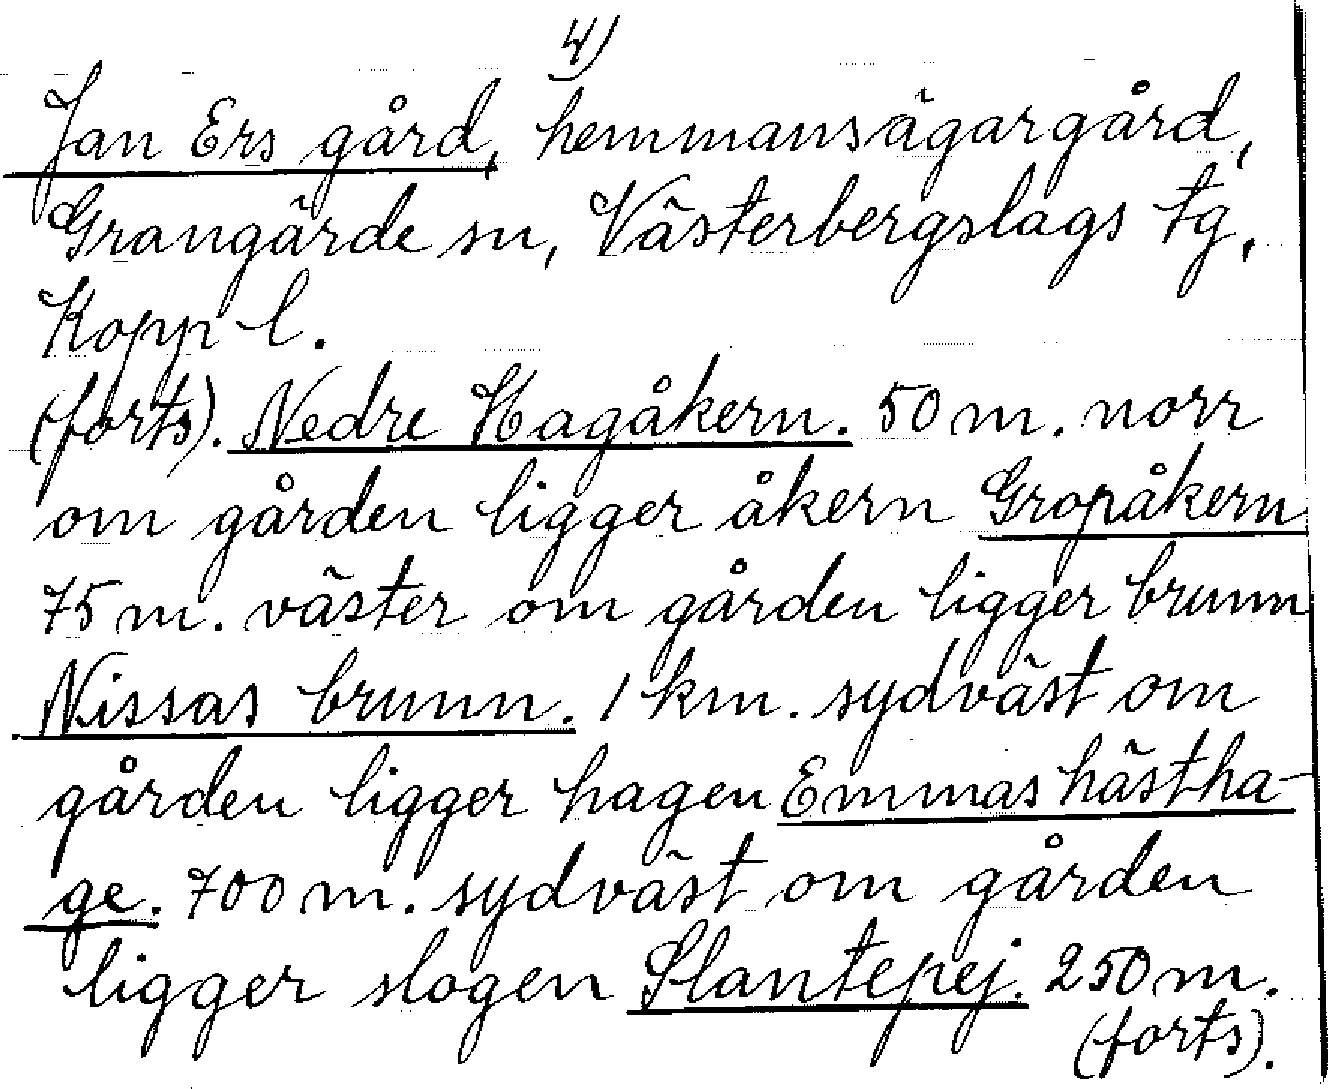 4)
Jan Ers gård, hemmansägargård,
Grangärde sn, Västerbergslags tg,
Kopp l.
(forts). Nedre Hagåkern. 50 m. norr
om gården ligger åkern Gropåkern
75 m. väster om gården ligger brunn
Nissas brunn. 1 km. sydväst om
gården ligger hagen Emmas hästha-
ge. 700 m. sydväst om gården
ligger slogen Slantepej. 250 m.
(forts).